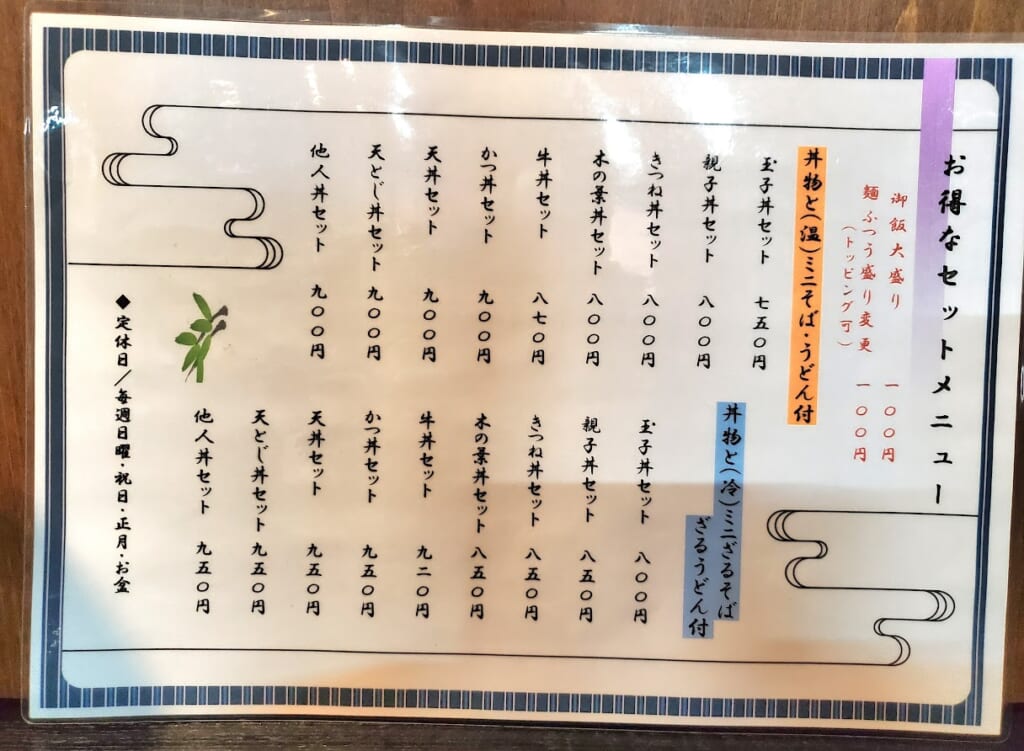 お得なセットメニュー
御飯大盛り 一〇〇円
麺ふつう盛り変更 一〇〇円
(トッピング可)
丼物と(温)ミニそば・うどん付
玉子丼セット 七五〇円
親子丼セット 八〇〇円
きつね丼セット 八〇〇円
木の葉丼セット 八〇〇円
牛丼セット 八七〇円
かつ丼セット 九〇〇円
天丼セット 九〇〇円
天とじ丼セット 九〇〇円
他人丼セット 九〇〇円
丼物と(冷)ミニざるそば
ざるうどん付
玉子丼セット 八〇〇円
親子丼セット 八五〇円
きつね丼セット 八五〇円
木の葉丼セット 八五〇円
牛丼セット 九二〇円
かつ丼セット 九五〇円
天丼セット 九五〇円
天とじ丼セット 九五〇円
他人丼セット 九五〇円
◆定休日/毎週日曜・祝日・正月・お盆